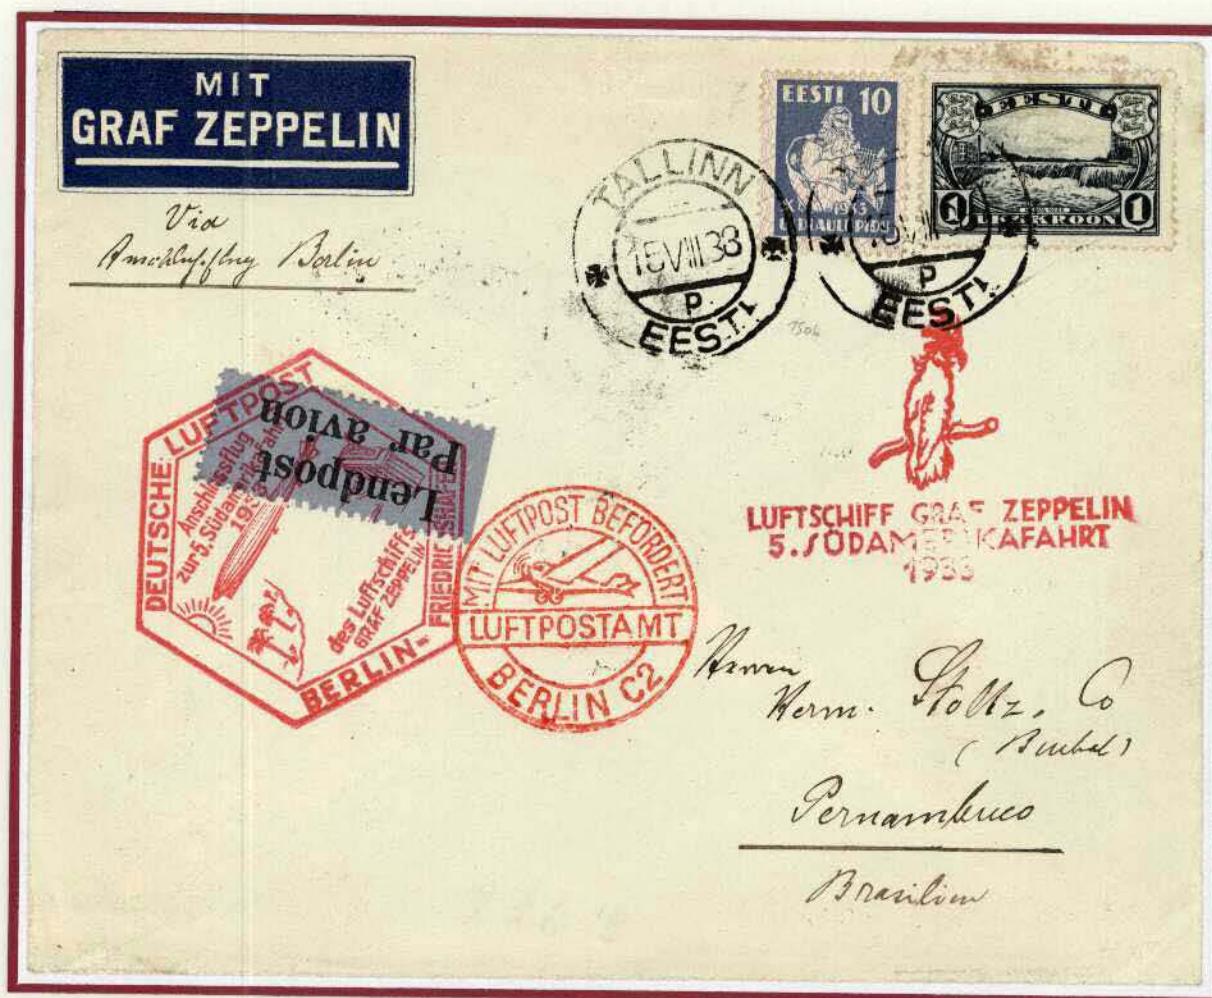 MIT
GRAF ZEPPELIN
Via
Anschlussflug Berlin
EESTI 10
1933
EESTI
1 ÜKS KROON 1
TALLINN
15 VIII 33
P
EESTI
P
EESTI
DEUTSCHE LUFTPOST
Anschlussflug
zur 5. Südamerikafahrt
1933
des Luftschiffs
GRAF ZEPPELIN
BERLIN-
FRIEDRICHSHAFEN
Lendpost
Par avion
MIT LUFTPOST BEFÖRDERT
LUFTPOSTAMT
BERLIN C2
LUFTSCHIFF GRAF ZEPPELIN
5. SÜDAMERIKAFAHRT
1933
Herren
Herm. Stoltz, Co
Pernambuco
Brasilien